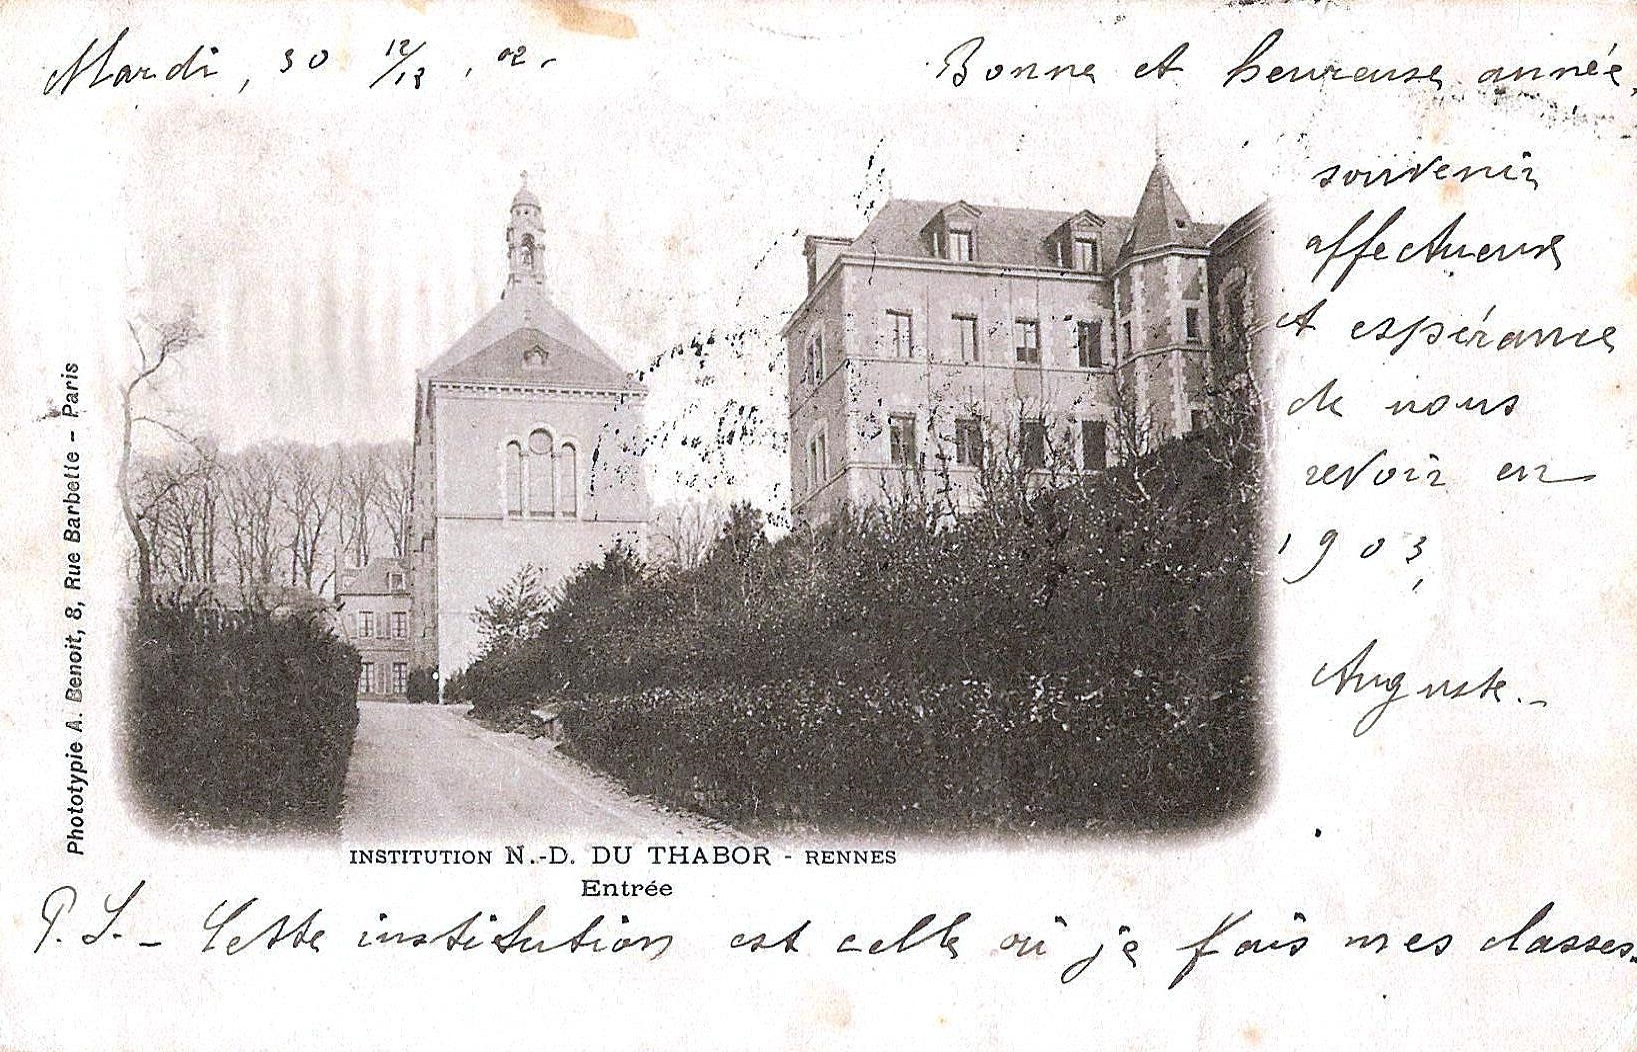 Mardi, 30 12/12, 02.
Bonne et heureuse année,
souvenir
affectueux
et espérance
de nous
revoir en
1903,
Auguste.-
Phototypie A. Benoit, 8, Rue Barbette - Paris
INSTITUTION N.-D. DU THABOR - RENNES
Entrée
P. S. - Cette institution est celle où je fais mes classes.